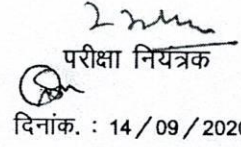 परीक्षा नियंत्रक
दिनांक. : 14/09/2020